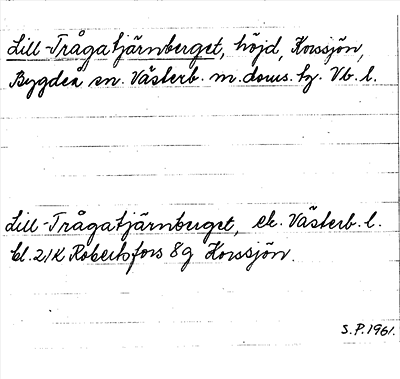 Lill-Trågatjärnberget, höjd, Korssjön,
Bygdeå sn. Västerb. m. doms. hg. Vb. l.
Lill-Trågatjärnberget, ek. Västerb. l.
bl. 21K Robertsfors 8g Korssjön.
S.P. 1961.